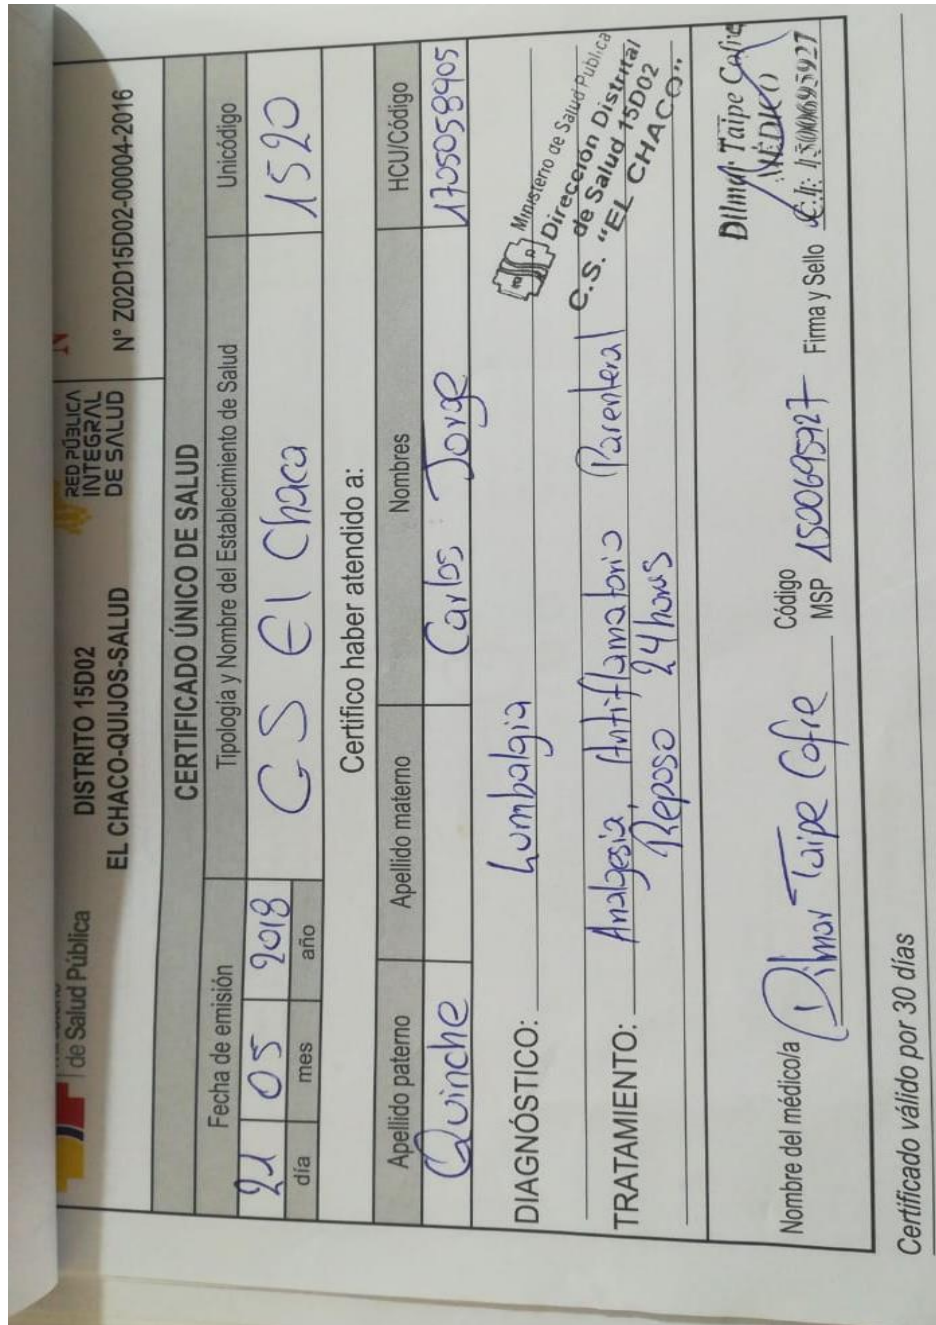 de Salud Pública
DISTRITO 15D02
EL CHACO-QUIJOS-SALUD
RED PÚBLICA
INTEGRAL
DE SALUD
N° Z02D15D02-00004-2016
CERTIFICADO ÚNICO DE SALUD
Fecha de emisión Tipología y Nombre del Establecimiento de Salud Unicódigo
21 05 2018 CS El Chaca 1520
día mes año
Certifico haber atendido a:
Apellido paterno Apellido materno Nombres HCU/Código
Quinche Carlos Jorge 1705058905
DIAGNÓSTICO: Lumbalgia
TRATAMIENTO: Analgesia, Antiflamatorio Parenteral
Reposo 24 horas
Ministerio de Salud Pública
Dirección Distrital
de Salud 15D02
C.S. "EL CHACO"
Nombre del médico/a Dilmar Taipe Cofre Código MSP 1500695927 Firma y Sello
Dilmar Taipe Cofre
MÉDICO
C.I: 1500695927
Certificado válido por 30 días